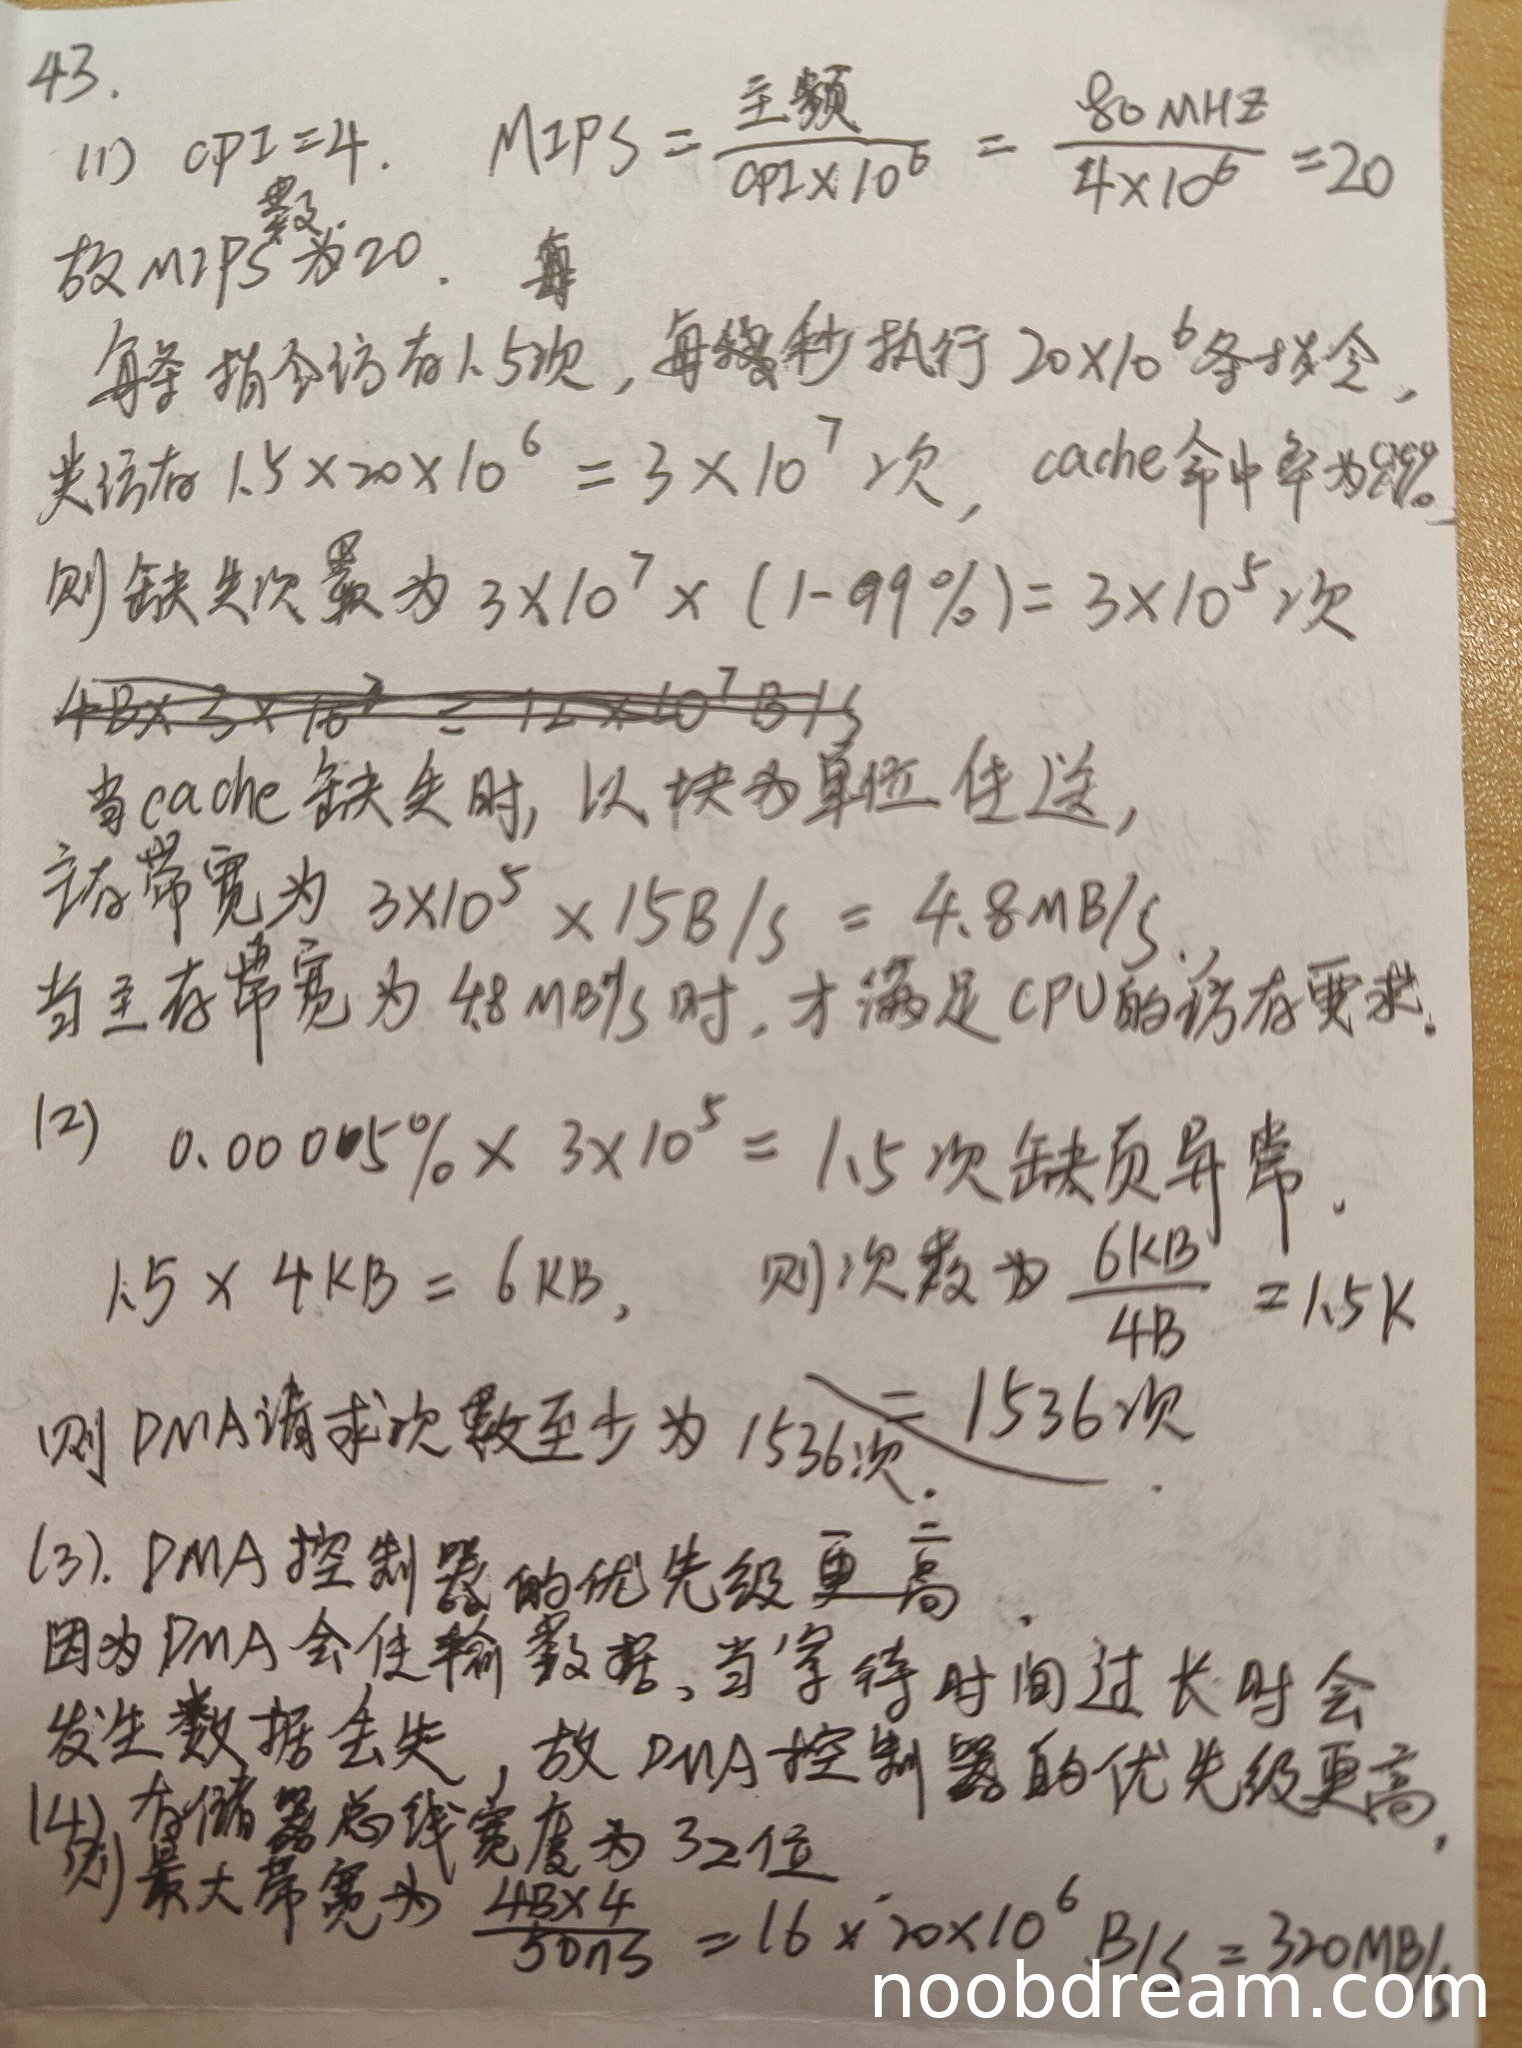 43.
(1) CPI=4. MIPS = 主频 / CPI×10^6 = 80MHZ / 4×10^6 =20
故MIPS数为20.
每条指令访存1.5次,每秒执行20×10^6条指令,
共访存1.5×20×10^6 = 3×10^7次, cache命中率为99%.
则缺失次数为3×10^7×(1-99%)=3×10^5次
4B×3×10^7 = 12×10^7B/s
当cache缺失时,以块为单位传送,
主存带宽为 3×10^5 ×15B/s = 4.8MB/s.
当主存带宽为4.8MB/s时,才满足CPU的访存要求.
(2) 0.0005%× 3×10^5 = 1.5次缺页异常.
1.5 × 4KB = 6KB, 则次数为 6KB / 4B =1.5K
= 1536次
则DMA请求次数至少为1536次.
(3). DMA控制器的优先级更高.
因为DMA会传输数据、当等待时间过长时会
发生数据丢失,故DMA控制器的优先级更高.
(4) 存储器总线宽度为32位
则最大带宽为 4B×4 / 50ns =16×20×10^6 B/s = 320MB/s
noobdream.com